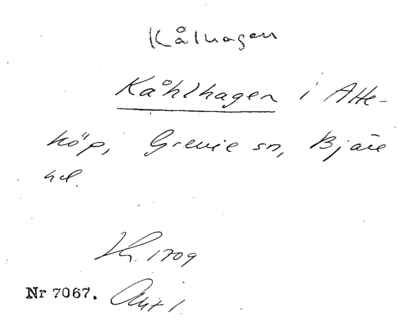 Kålhagen
Kåhlhagen i Atte-
köp, Grevie sn, Bjäre
hd.
1709
Nr 7067.